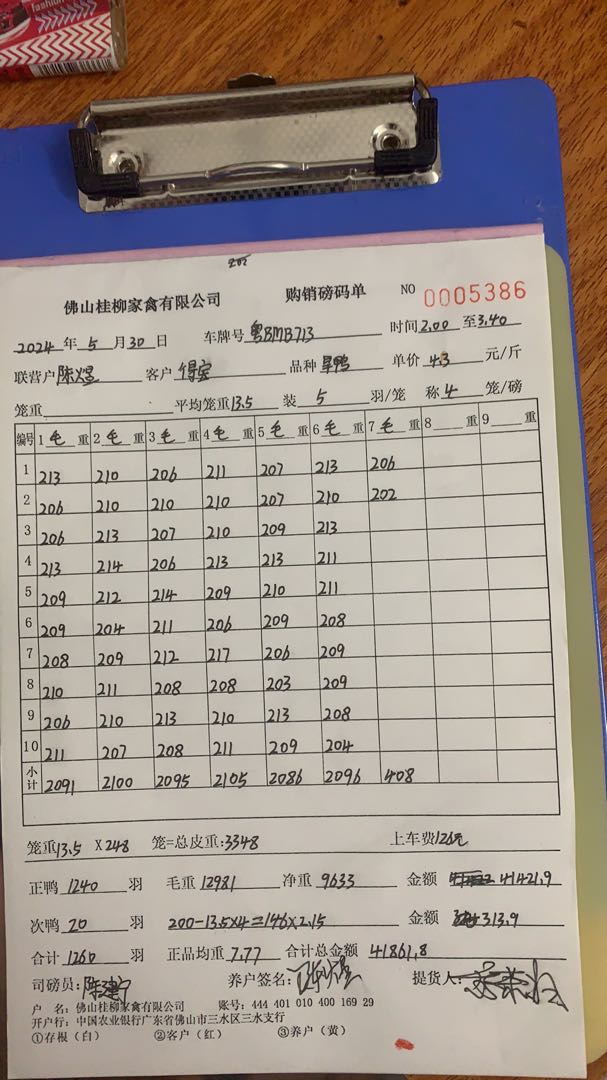 fashion
202
佛山桂柳家禽有限公司 购销磅码单 NO 0005386
2024 年 5 月 30 日 车牌号 粤BMB713 时间 2.00 至 3.40
联营户 陈煜 客户 得宝 品种 旱鸭 单价 4.3 元/斤
笼重 平均笼重 13.5 装 5 羽/笼 称 4 笼/磅
编号 1 毛 重 2 毛 重 3 毛 重 4 毛 重 5 毛 重 6 毛 重 7 毛 重 8 重 9 重
1 213 210 206 211 207 213 206
2 206 210 210 210 207 210 202
3 206 213 207 210 209 213
4 213 214 206 213 213 211
5 209 212 214 209 210 211
6 209 204 211 206 209 208
7 208 209 212 217 206 209
8 210 211 208 208 203 209
9 206 210 213 210 213 208
10 211 207 208 211 209 204
小计 2091 2100 2095 2105 2086 2096 408
笼重 13.5 X 248 笼=总皮重: 3348 上车费 126元
正鸭 1240 羽 毛重 12981 净重 9633 金额 41421.9
次鸭 20 羽 200-13.5x4=146x2.15 金额 313.9
合计 1260 羽 正品均重 7.77 合计总金额 41861.8
司磅员: 养户签名: 提货人:
户 名: 佛山桂柳家禽有限公司 账号: 444 401 010 400 169 29
开户行: 中国农业银行广东省佛山市三水区三水支行
①存根（白） ②客户（红） ③养户（黄）